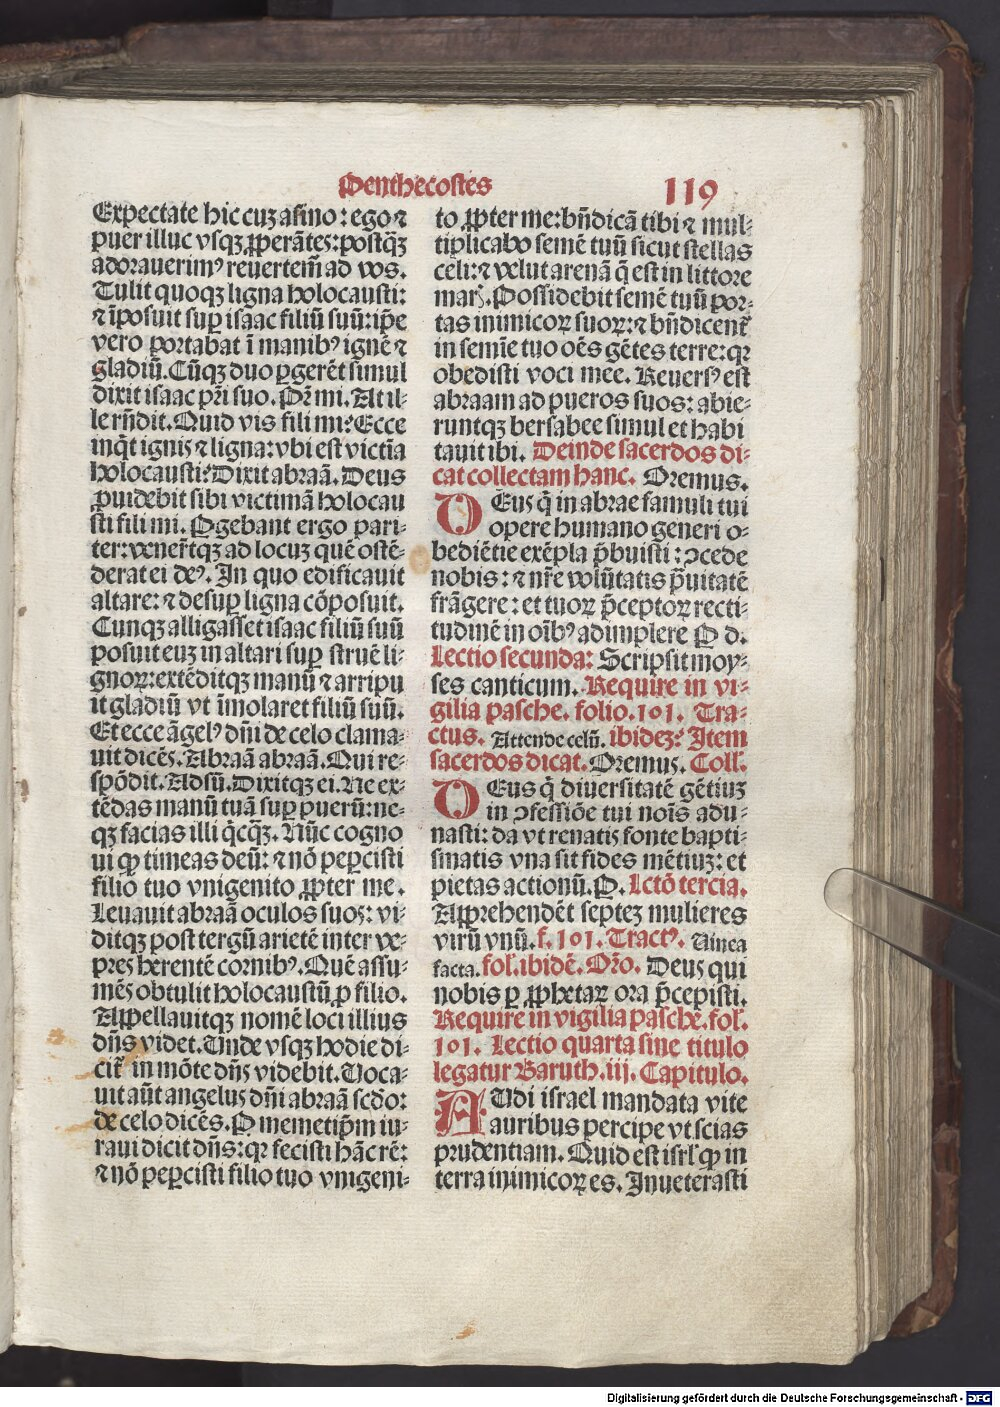 Penthecostes
119
Expectate hic cuꝫ asino: ego ⁊
puer illuc vsqꝫ ꝓꝑerãtes: postq̃ꝫ
adorauerimꝰ reuertem̃ ad vos.
Tulit quoqꝫ ligna holocausti:
⁊ ĩposuit suꝑ isaac filiũ suũ: ip̃e
vero portabat ĩ manibꝰ ignẽ ⁊
gladiũ. Cũqꝫ duo ꝑgerẽt simul
dixit isaac pr̃i suo. Pr̃ mi. At il-
le rñdit. Quid vis fili mi? Ecce
inq̃t ignis ⁊ ligna: vbi est victĩa
holocausti? Dixit abraã. Deus
ꝓuidebit sibi victimã holocau
sti fili mi. Ꝑgebant ergo pari-
ter: vener̃tqꝫ ad locuꝫ quẽ ostẽ-
derat ei deꝰ. In quo edificauit
altare: ⁊ desuꝑ ligna cõposuit.
Cunqꝫ alligasset isaac filiũ suũ
posuit euꝫ in altari suꝑ struẽ li-
gnoꝝ: extẽditqꝫ manũ ⁊ arripu
it gladiũ vt ĩmolaret filiũ suũ.
Et ecce ãgelꝰ dñi de celo clama-
uit dicẽs. Abraã abraã. Qui re-
spõdit. Adsũ. Dixitqꝫ ei. Ne ex-
tẽdas manũ tuã suꝑ puerũ: ne-
qꝫ facias illi q̃cq̃ꝫ. Nũc cogno
ui ꝙ timeas deũ: ⁊ nõ peꝑcisti
filio tuo vnigenito ꝓꝑter me.
Leuauit abraã oculos suos: vi-
ditqꝫ post tergũ arietẽ inter ve-
pres herentẽ cornibꝰ. Quẽ assu-
mẽs obtulit holocaustũ ꝓ filio.
Appellauitqꝫ nomẽ loci illius
dñs videt. Unde vsqꝫ hodie di-
cit᷑ in mõte dñs videbit. Uoca-
uit aũt angelus dñi abraã scd̃o:
de celo dicẽs. Ꝑ memetip̃m iu-
raui dicit dñs: qꝛ fecisti hãc rẽ:
⁊ nõ peꝑcisti filio tuo vnigeni-
to ꝓꝑter me: bñdicã tibi ⁊ mul-
tiplicabo semẽ tuũ sicut stellas
celi: ⁊ velut arenã q̃ est in littore
mar̃. Possidebit semẽ tuũ por-
tas inimicoꝝ suoꝝ: ⁊ bñdicent᷑
in semĩe tuo oẽs gẽtes terre: qꝛ
obedisti voci mee. Reuersꝰ est
abraam ad pueros suos: abie-
runtqꝫ bersabee simul et habi
tauit ibi. Deinde sacerdos di-
cat collectam hanc. Oremus.
DEus q̃ in abrae famuli tui
opere humano generi o-
bediẽtie exẽpla p̃buisti: ↄcede
nobis: ⁊ nr̃e volũtatis p̃uitatẽ
frãgere: et tuoꝝ p̃ceptoꝝ recti-
tudinẽ in oĩbꝰ adimplere P d.
Lectio secunda: Scripsit moy-
ses canticum. Require in vi-
gilia pasche. folio. 101. Tra-
ctus. Attende celũ. ibideꝫ: Item
sacerdos dicat. Oremus. Coll̃.
DEus q̃ diuersitatẽ gẽtiuꝫ
in ↄfessiõe tui noĩs adu-
nasti: da vt renatis fonte bapti-
smatis vna sit fides mẽtiuꝫ: et
pietas actionũ. P. Lctõ tercia.
Apprehendẽt septeꝫ mulieres
virũ vnũ. f. 101. Tractꝰ. Uinea
facta. fol̃. ibidẽ. Or̃o. Deus qui
nobis ꝑ ꝓphetaꝝ ora p̃cepisti.
Require in vigilia pasche. fol̃.
101. Lectio quarta sine titulo
legatur Baruth. iij. Capitulo.
AUdi israel mandata vite
auribus percipe vt scias
prudentiam. Quid est isrl̃ ꝙ in
terra inimicoꝝ es. Inueterasti
Digitalisierung gefördert durch die Deutsche Forschungsgemeinschaft - DFG